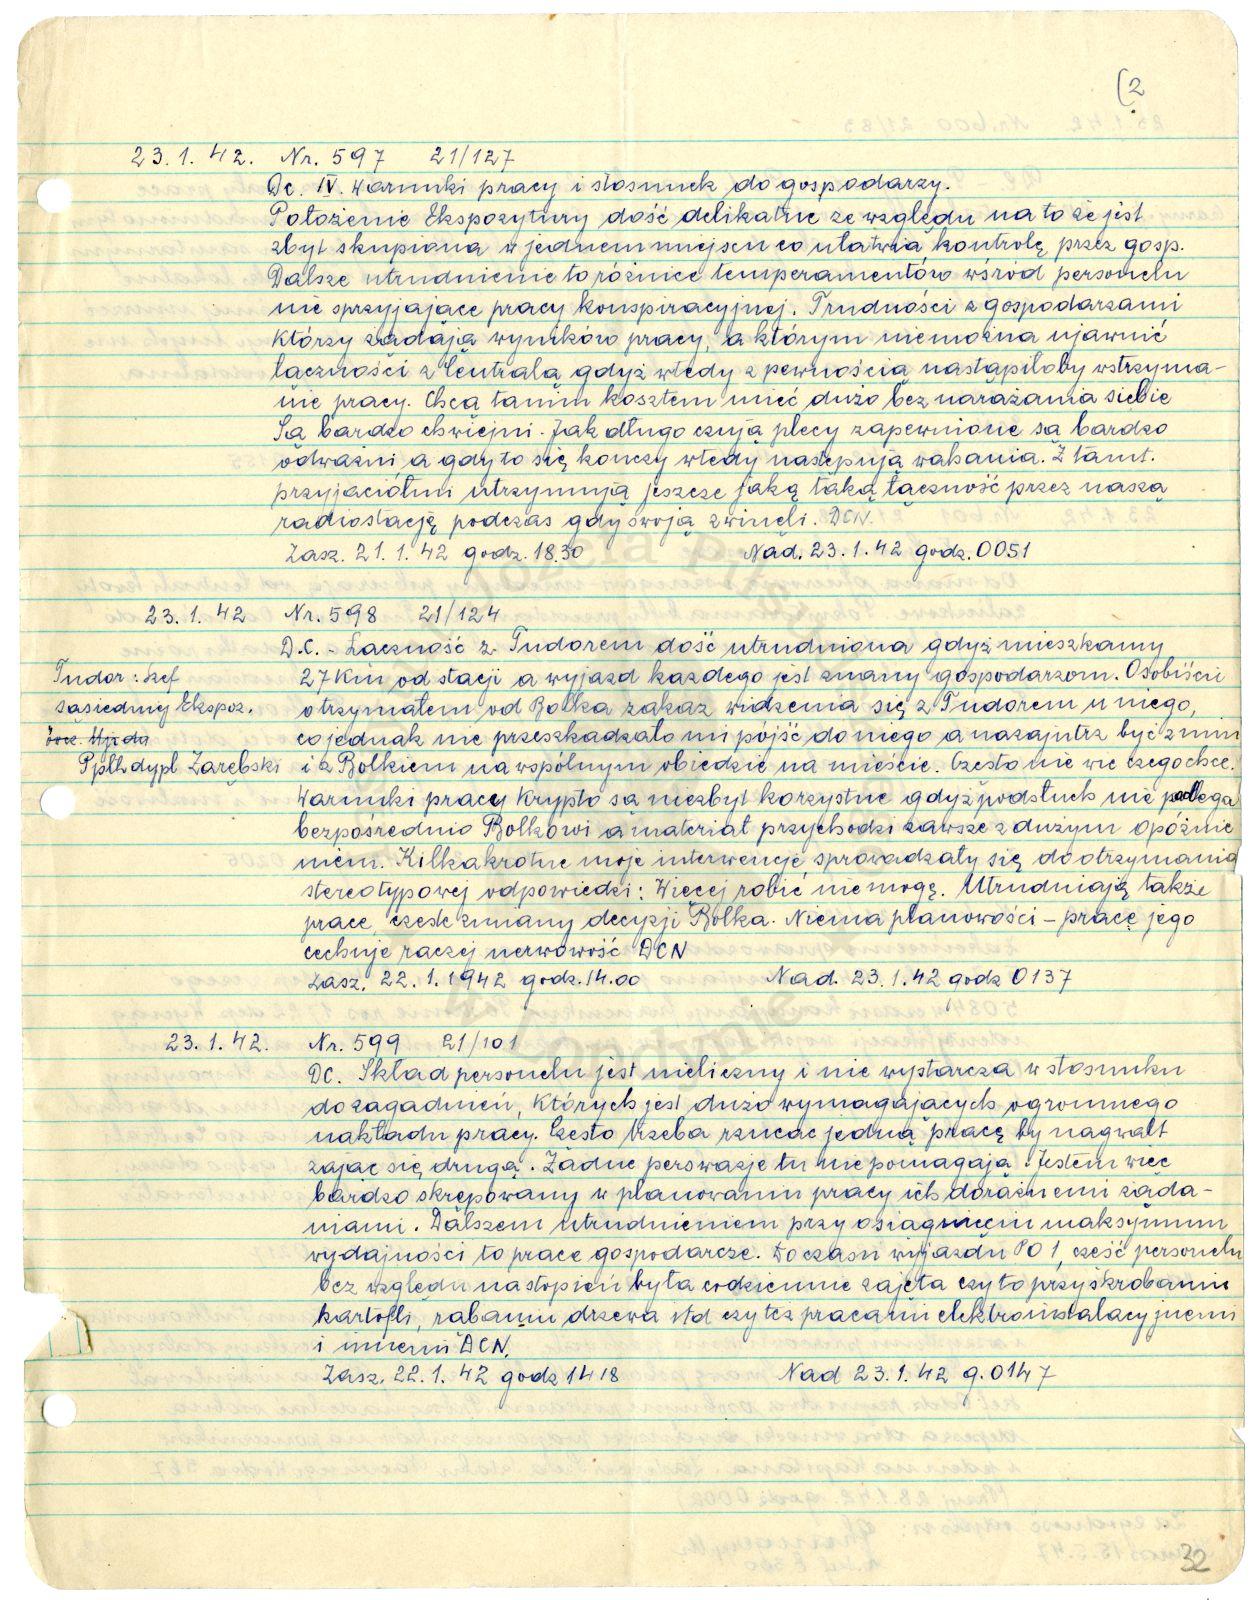 (2
23.1.42. Nr. 597 21/127
Dc. IV. Warunki pracy i stosunek do gospodarzy.
Położenie Ekspozytury dość delikatne ze względu na to że jest
zbyt skupiona w jednem miejscu co ułatwia kontrolę przez gosp.
Dalsze utrudnienie to różnice temperamentów wśród personelu
nie sprzyjające pracy konspiracyjnej. Trudności z gospodarzami
którzy żądają wyników pracy, a którym niemożna ujawnić
łączności z Centralą gdyż wtedy z pewnością nastąpiłoby wstrzyma-
nie pracy. Chcą tanim kosztem mieć dużo bez narażania siebie
Są bardzo chwiejni. Jak długo czują plecy zapewnione są bardzo
odważni a gdy to się kończy wtedy następują wahania. Z tamt.
przyjaciółmi utrzymują jeszcze jaką taką łączność przez naszą
radiostację podczas gdy swoją zwineli. DCN.
Zasz. 21.1.42 godz. 18.30 Nad. 23.1.42 godz. 0051
23.1.42 Nr. 598 21/124
D.C. - Łączność z Tudorem dość utrudniona gdyż mieszkamy
27 Km od stacji a wyjazd każdego jest znany gospodarzom. Osobiście
otrzymałem od Bolka zakaz widzenia się z Tudorem u niego,
co jednak nie przeszkadzało mi pójść do niego a nazajutrz być z nim
i z Bolkiem na wspólnym obiedzie na mieście. Często nie wie czego chce.
Warunki pracy Krypto są niezbyt korzystne gdyż podsłuch nie podlega
bezpośrednio Bolkowi a materiał przychodzi zawsze z dużym opóźnie
niem. Kilkakrotne moje interwencje sprowadzały się do otrzymania
stereotypowej odpowiedzi: Więcej robić nie mogę. Utrudniają także
prace częste zmiany decyzji Bolka. Niema planowości - pracę jego
cechuje raczej nerwowość DCN
Zasz. 22.1.1942 godz. 14.00 Nad. 23.1.42 godz 0137
Tudor: szef
sąsiedniej Ekspoz.
Ppłk dypl Zarębski
23.1.42. Nr. 599 21/101
DC. Skład personelu jest nieliczny i nie wystarcza w stosunku
do zagadnień, których jest dużo wymagających ogromnego
nakładu pracy. Często trzeba rzucać jedną pracę by nagwałt
zająć się drugą. Żadne perswazje tu nie pomagają. Jestem więc
bardzo skrępowany w planowaniu pracy ich doraźnemi żąda-
niami. Dalszem utrudnieniem przy osiągnięciu maksymum
wydajności to prace gospodarcze. Do czasu wyjazdu PO 1, część personelu
bez względu na stopień była codziennie zajęta czy to przy skrobaniu
kartofli, rąbaniu drzewa itd czy też pracami elektroinstalacyjnemi
i innemi DCN.
Zasz. 22.1.42 godz 1418 Nad 23.1.42 g. 0147
32